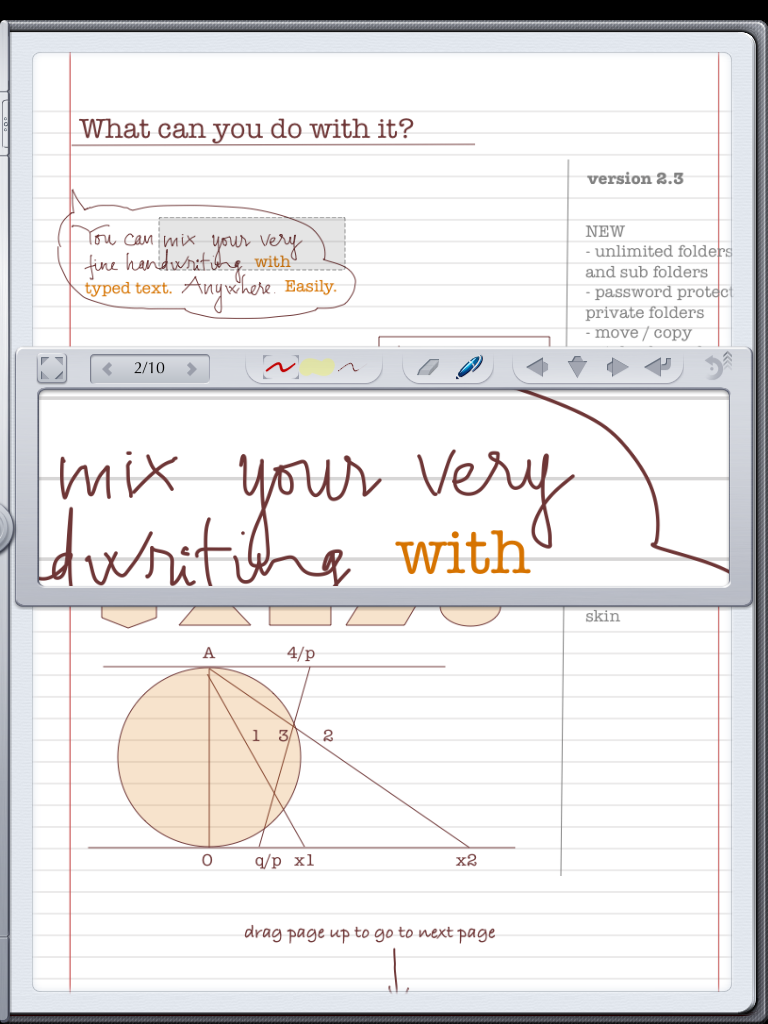 What can you do with it?
version 2.3
You can mix your very
fine handwriting with
typed text. Anywhere. Easily.
NEW
- unlimited folders
and sub folders
- password protect
private folders
- move / copy
2/10
mix your very
dwriting with
skin
A 4/p
1 3 2
O q/p x1 x2
drag page up to go to next page